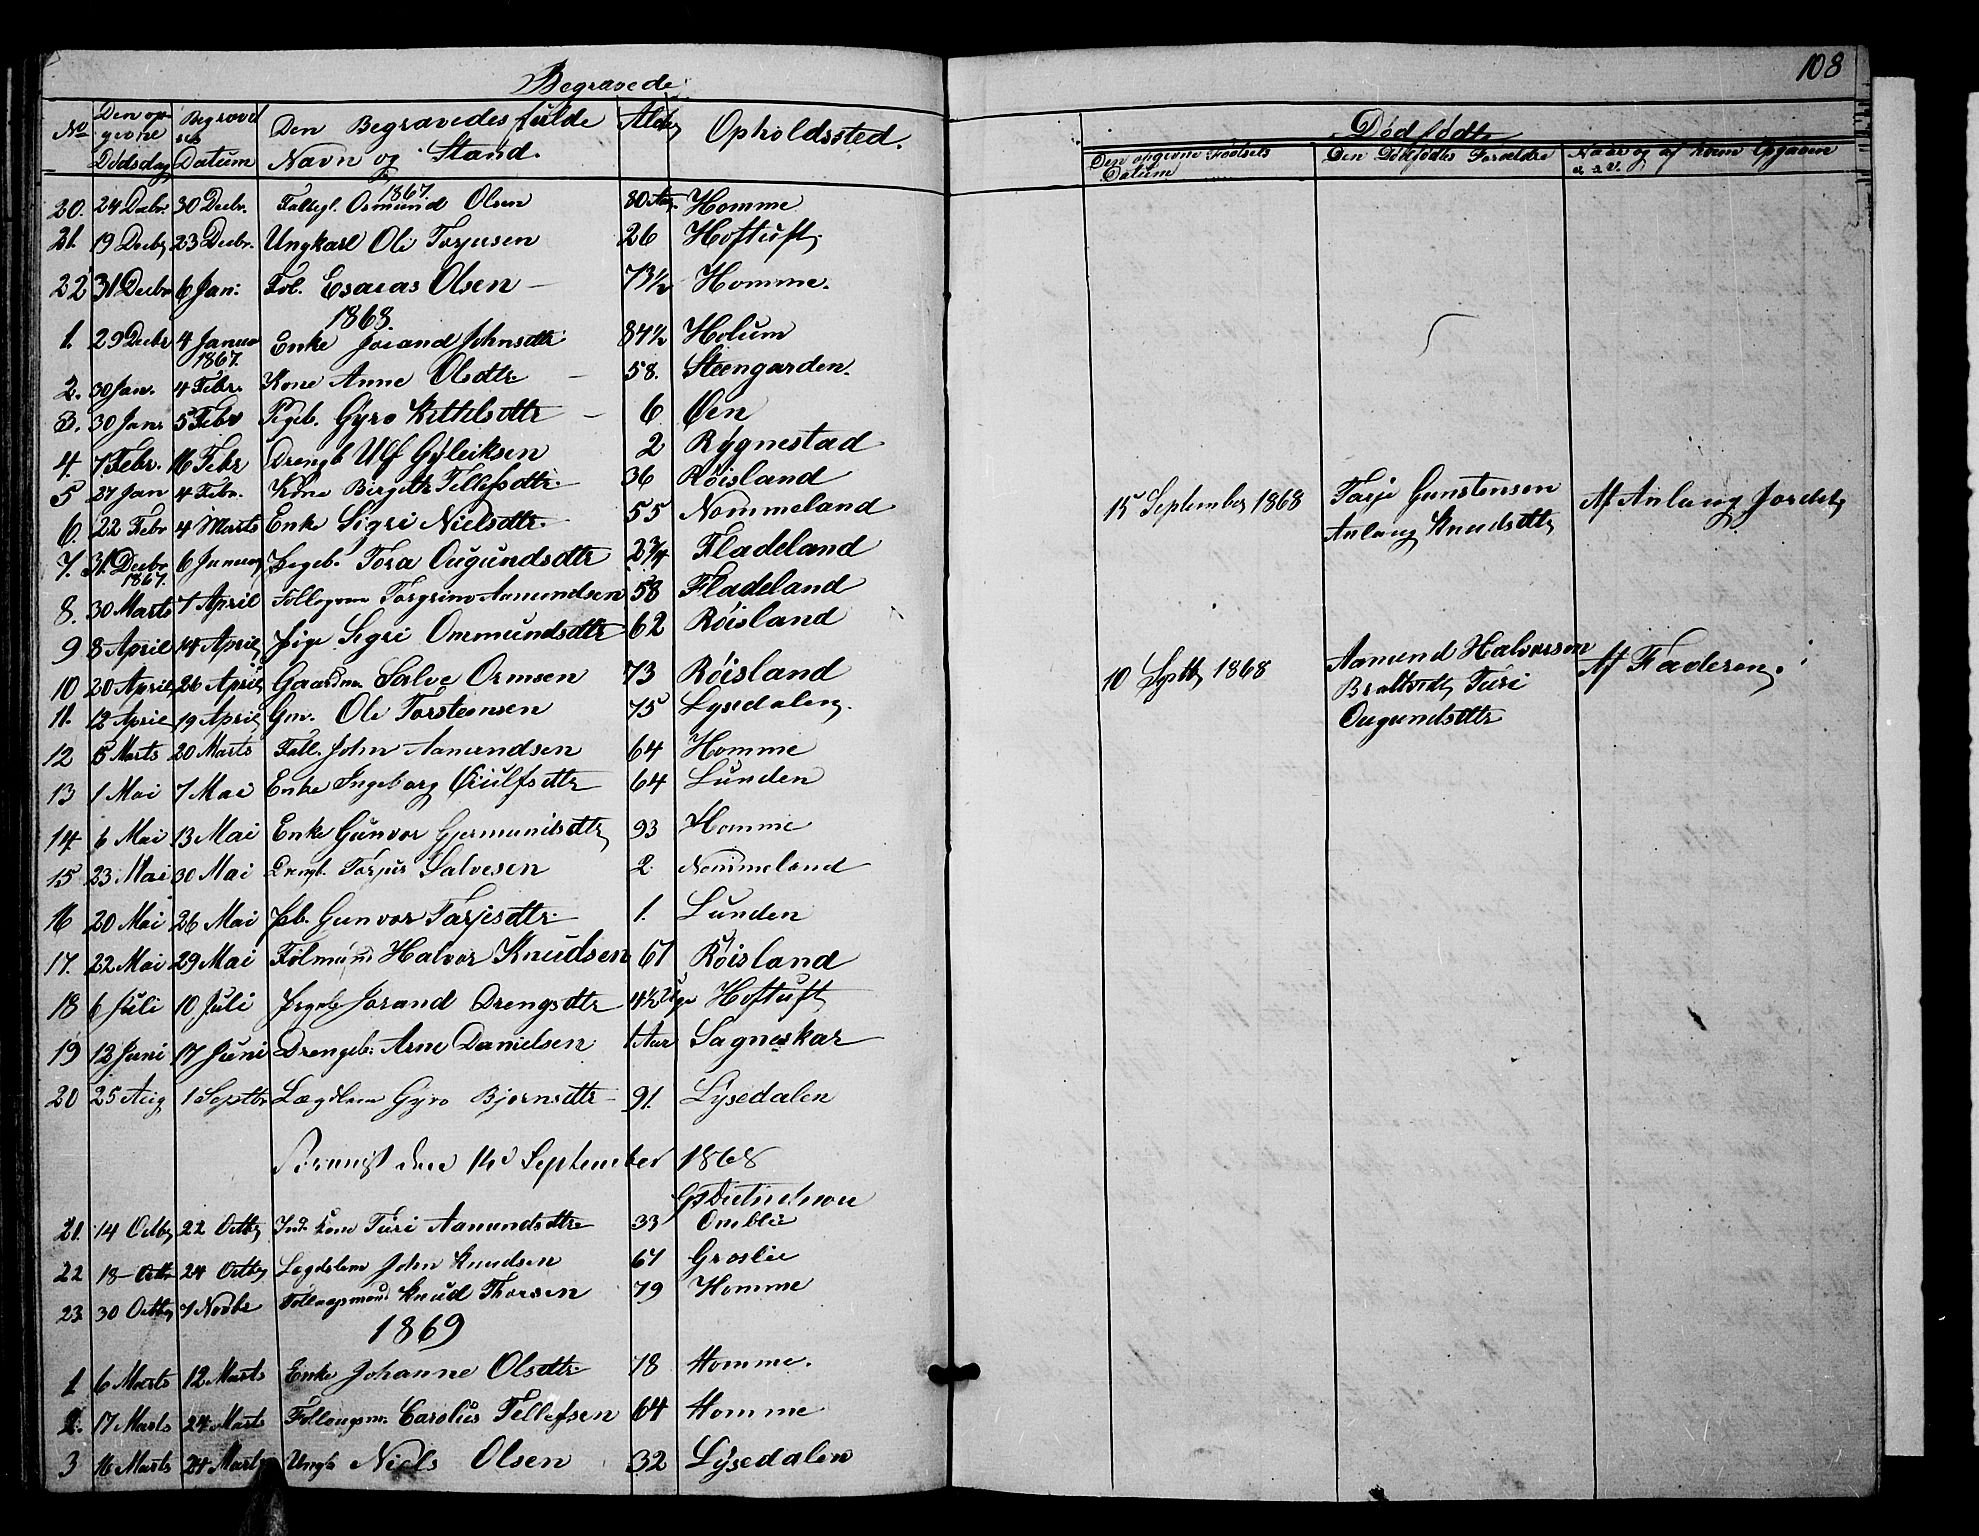 108
Begravede
No Den opgivne Dødsdag Begravelses Datum Den Begravedes fulde Navn og Stand. Alder Opholdssted.
Dødfødte
Den opgivne Fødsels Datum Den Dødfødtes Forældre Naar og af hvem Opgaven
1867.
20. 24 Decbr. 30 Decbr. Osmund Olsen 80 Aar Homme
21. 19 Decbr 23 Decbr. Ungkarl Ole Torjusen 26 Hoftuft
22 31 Decbr 6 Jan: Føl. Esaias Olsen — 73½ Homme.
1868.
1. 29 Decbr 1867. 4 Januar Enke Jorand Johnsdtr 87½ Holum
2. 30 Jan. 4 Febr. Kone Anne Olsdtr — 58. Steengarden.
3. 30 Jan. 5 Febr Pigeb. Gyro Kittelsdtr — 6 Øen
4. 7 Febr. 16 Febr Drengb Ulf Gyleiksen 2 Rygnestad
5 27 Jan 4 Febr. Kone Birgitte Tellefsdtr. 36 Røisland
6. 22 Febr 4 Marts Enke Sigri Nielsdtr. 55 Nommeland
7. 31. Decbr 1867. 6 Januar Pigeb. Tora Ougundsdtr 2¾ Fladeland
8. 30 Marts 7 April Torgrim Aamundsen 58 Fladeland
9 8 April 14 April Pige Sigri Ommundsdtr 62 Røisland
10 20 April 26 April Gaardm. Salve Ormsen 73 Røisland
11. 12 April 19 April Gm. Ole Torsteensen 75 Lysedalen.
12 15 Marts 20 Marts Føll. John Aamundsen 64 Homme
13 1 Mai 7 Mai Enke Ingeborg Eiulfsdtr 64 Lunden
14. 6 Mai 13 Mai Enke Gunvor Gjermundsdtr 93 Homme
15 23 Mai 30 Mai Drengb. Torjus Salvesen 2 Nommeland
16 20 Mai 26 Mai Pb. Gunvor Tarjesdtr. 1. Lunden
17. 22 Mai 29 Mai Følmand Halvor Knudsen 67 Røisland
18 6 Juli 10 Juli Pigeb Jorand Drengsdtr 4½ Uge Hoftuft
19 12 Juni 17 Juni Drengeb. Arne Danielsen 1 Aar Sagneskar
20 25 Aug 1 Septbr Lægdslem Gyro Bjørnsdtr 91. Lysedalen
den 14d September 1868
21. 14 Octbr 22 Octbr Ind. kone Turi Aamundsdtr 33
22 18 Octbr 24 Octbr Legdslem John Knudsen 67 Groslie
23. 30 Octbr 7 Novbr Føllaugsmand Knud Thorsen 79 Homme
1869
1 6 Marts 12 Marts Enke Johanne Olsdtr. 78 Homme.
2. 17 Marts 24 Marts Føllaugsm. Carolus Tellefsen 64 Homme
3 16 Marts 24 Marts Ungk Niels Olsen 32 Lysedalen
15 September 1868 Tarje Gunstensen Anlaug Knudsdtr Af Anlaug Jordet
10 Septbr 1868 Aamund Halvorsen Turi Ougundsdtr Af Faderen.